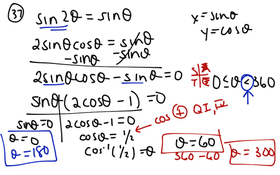 37 sin2θ = sinθ
x = sinθ
y = cosθ
2sinθcosθ = sinθ
-sinθ -sinθ
2sinθcosθ - sinθ = 0
S A
T C
0 ≤ θ < 360
sinθ (2cosθ - 1) = 0
sinθ = 0
2cosθ - 1 = 0
cos + QI, IV
θ = 0
cosθ = 1/2
θ = 180
cos⁻¹(1/2) = θ
θ = 60
360 - 60
θ = 300